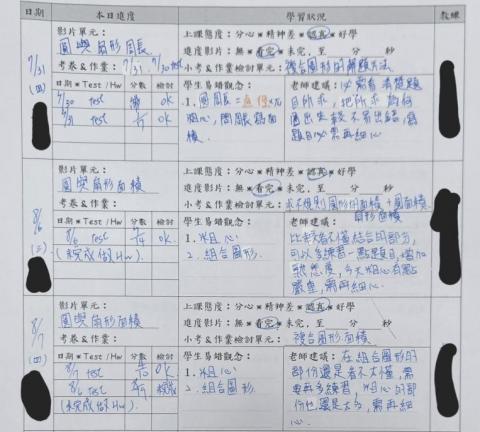 日期 本日進度 學習狀況 教練
影片單元：
圓與扇形周長
考卷＆作業：7/31、7/30 test
7/31
(四)
上課態度：分心＊精神差＊認真＊好學
進度影片：無＊看完＊未完，至 分 秒
小考＆作業檢討單元：複合圖形的解題方法
日期＊Test/Hw 分數 檢討
7/30 test OK
7/31 test OK
學生易錯觀念：
1. 圓周長=直徑×π
粗心，問周長寫面
積。
老師建議：必需看清楚題
目所求，把所求
題目必需再細心
8/6
(三)
影片單元：
圓與扇形面積
考卷＆作業：
上課態度：分心＊精神差＊認真＊好學
進度影片：無＊看完＊未完，至 分 秒
小考＆作業檢討單元：求不規則圖形的面積、圓面積
扇形面積
日期＊Test/Hw 分數 檢討
8/6 Test OK
(未完成做Hw.)
學生易錯觀念：
1. 粗心
2. 組合圖形.
老師建議：
比較看不懂組合的部分,
可以多練習一點題目,增加
熟悉度,今天粗心有點
嚴重,需再細心.
8/7
(四)
影片單元：
圓與扇形面積
考卷＆作業：
上課態度：分心＊精神差＊認真＊好學
進度影片：無＊看完＊未完，至 分 秒
小考＆作業檢討單元：
複合圖形面積
日期＊Test/Hw 分數 檢討
8/7 test OK
8/6 test
(未完成做Hw)
學生易錯觀念：
1. 粗心
2. 組合圖形.
老師建議：在組合圖形的
部份還是看不太懂,需
要再多練習,粗心的部
份也還是太多,需再細
心.